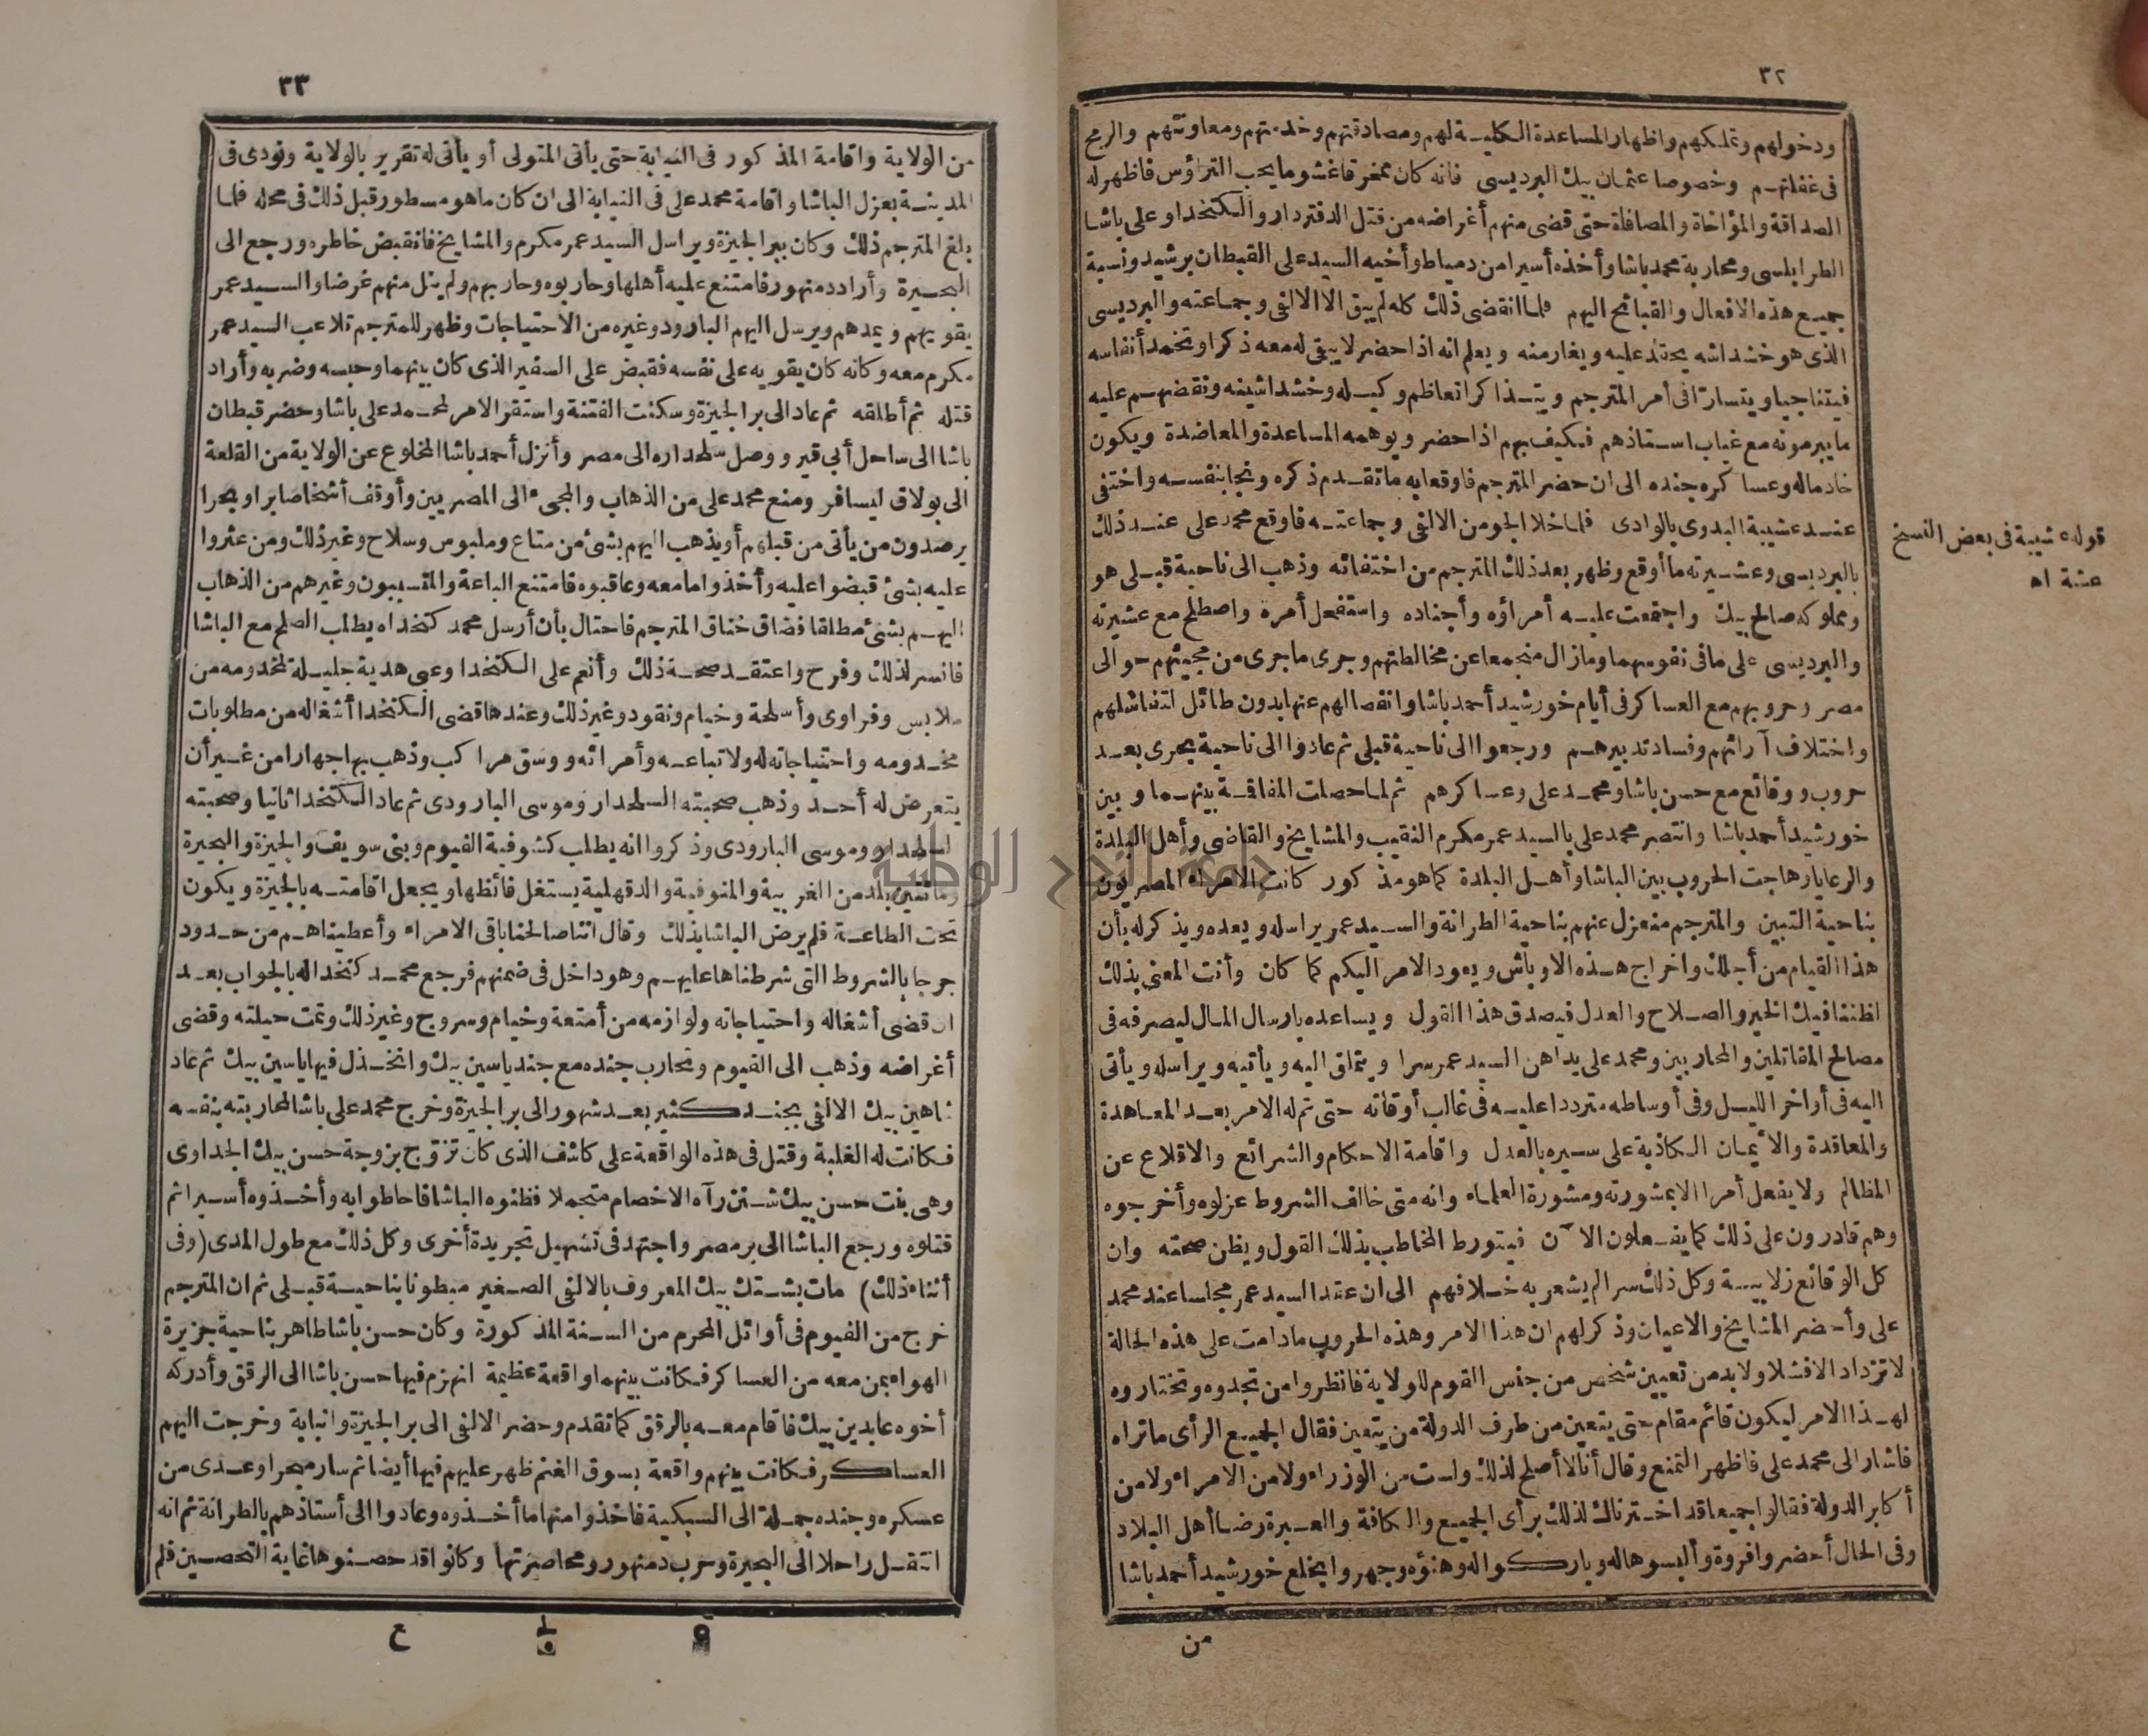 ٣٢
ودخولهم وتملكهم واظهار المساعدة الكلية لهم ومصادقتهم وخدمتهم ومعاونتهم والرمح
فى غفلتهم وخصوصا عثمان بيك البرديسى فانه كان ممخرقا غشوما يحب الترؤس فاظهر له
الصداقة والمؤاخاة والمصافاة حتى قضى منهم أغراضه من قتل الدفتردار والكتخدا وعلى باشا
الطرابلسى ومحاربة محمد باشا وأخذه أسيرا من دمياط وأخيه السيد على القبطان برشيد ونسبة
جميع هذه الافعال والقبائح اليهم فلما انقضى ذلك كله لم يبق الا الالفى وجماعته والبرديسى
الذى هو خشداشه يحقد عليه ويغار منه ويعلم انه اذا حضر لا يبقى له معه ذكر او تخمد أنفاسه
فيتناجيا ويتسارا فى أمر المترجم ويتذاكرا تعاظم وكيله وخشداشينه ونقضهم عليه
ما يبرمونه مع غياب استاذهم فكيف بهم اذا حضر ويوهمه المساعدة والمعاضدة ويكون
خادما له وعساكره جنده الى ان حضر المترجم فاوقعا به ما تقدم ذكره ونجا بنفسه واختفى
عند عشيبة البدوى بالوادى فلما خلا الجو من الالفى وجماعته فاوقع محمد على عند ذلك
بالبرديسى وعشيرته ما أوقع وظهر بعد ذلك المترجم من اختفائه وذهب الى ناحية قبلى هو
ومملوكه صالح بيك واجتمعت عليه أمراؤه وأجناده واستفحل أمره واصطلح مع عشيرته
والبرديسى على ما فى نفوسهما وما زال منجمعا عن مخالطتهم وجرى ما جرى من مجيئهم حوالى
مصر وحروبهم مع العساكر فى أيام خورشيد أحمد باشا وانفصالهم عنها بدون طائل لتفاشلهم
واختلاف آرائهم وفساد تدبيرهم ورجعوا الى ناحية قبلى ثم عادوا الى ناحية بحرى بعد
حروب ووقائع مع حسن باشا ومحمد على وعساكرهم ثم لما حصلت المفاقمة بينهما وبين
خورشيد أحمد باشا وانتصر محمد على بالسيد عمر مكرم النقيب والمشايخ والقاضى وأهل البلدة
والرعايا وهاجت الحروب بين الباشا وأهل البلدة كما هو مذكور كانت الامراء المصريون
بناحية التبين والمترجم منعزل عنهم بناحية الطرانة والسيد عمر يراسله ويعده ويذكر له بأن
هذا القيام من أجلك واخراج هذه الاوباش ويعود الامر اليكم كما كان وأنت المعنى بذلك
لظننا فيك الخير والصلاح والعدل فيصدق هذا القول ويساعده بارسال المال ليصرفه فى
مصالح المقاتلين والمحاربين ومحمد على يداهن السيد عمر سرا ويتملق اليه ويأتيه ويراسله ويأتى
اليه فى أواخر الليل وفى أوساطه مترددا عليه فى غالب أوقاته حتى تم له الامر بعد المعاهدة
والمعاقدة والأيمان الكاذبة على سيره بالعدل واقامة الاحكام والشرائع والاقلاع عن
المظالم ولا يفعل أمرا الا بمشورته ومشورة العلماء وانه متى خالف الشروط عزلوه وأخرجوه
وهم قادرون على ذلك كما يفعلون الآن فيتورط المخاطب بذلك القول ويظن صحته وان
كل الوقائع زلابية وكل ذلك سرا لم يشعر به خلافهم الى ان عقد السيد عمر مجلسا عند محمد
على وأحضر المشايخ والاعيان وذكر لهم ان هذا الامر وهذه الحروب ما دامت على هذه الحالة
لا تزداد الا فشلا ولا بد من تعيين شخص من جنس القوم للولاية فانظروا من تجدوه وتختاروه
لهذا الامر ليكون قائم مقام حتى يتعين من طرف الدولة من يتعين فقال الجميع الرأى ما تراه
فاشار الى محمد على فاظهر التمنع وقال أنا لا أصلح لذلك ولست من الوزراء ولا من الامراء ولا من
أكابر الدولة فقالوا جميعا قد اخترناك لذلك برأى الجميع والكافة والعبرة رضا أهل البلاد
وفى الحال أحضروا فروة وألبسوها له وباركوا له وهنؤه وجهروا بخلع خورشيد أحمد باشا
من
قوله عشيبة فى بعض النسخ
عشبة اه
٣٣
من الولاية واقامة المذكور فى النيابة حتى يأتى المتولى أو يأتى له تقرير بالولاية ونودى فى
المدينة بعزل الباشا واقامة محمد على فى النيابة الى ان كان ما هو مسطور قبل ذلك فى محله فلما
بلغ المترجم ذلك وكان ببر الجيزة ويراسل السيد عمر مكرم والمشايخ فانقبض خاطره ورجع الى
البحيرة وأراد دمنهور فامتنع عليه أهلها وحاربوه وحاربهم ولم ينل منهم غرضا والسيد عمر
يقويهم ويمدهم ويرسل اليهم البارود وغيره من الاحتياجات وظهر للمترجم تلاعب السيد عمر
مكرم معه وكانه كان يقويه على نفسه فقبض على السفير الذى كان بينهما وحبسه وضربه وأراد
قتله ثم أطلقه ثم عاد الى بر الجيزة وسكنت الفتنة واستقر الامر لمحمد على باشا وحضر قبطان
باشا الى ساحل أبى قير ووصل سلحداره الى مصر وأنزل أحمد باشا المخلوع عن الولاية من القلعة
الى بولاق ليسافر ومنع محمد على من الذهاب والمجىء الى المصريين وأوقف أشخاصا برا وبحرا
يرصدون من يأتى من قبلهم أو يذهب اليهم بشئ من متاع وملبوس وسلاح وغير ذلك ومن عثروا
عليه بشئ قبضوا عليه وأخذوا ما معه وعاقبوه فامتنع الباعة والمتسببون وغيرهم من الذهاب
اليهم بشئ مطلقا فضاق خناق المترجم فاحتال بأن أرسل محمد كتخداه يطلب الصلح مع الباشا
فانسر لذلك وفرح واعتقد صحة ذلك وأنعم على الكتخدا وعبى هدية جليلة لمخدومه من
ملابس وفراوى وأسلحة وخيام ونقود وغير ذلك وعندها قضى الكتخدا أشغاله من مطلوبات
مخدومه واحتياجاته له ولاتباعه وأمرائه ووسق مراكب وذهب بها جهارا من غير أن
يتعرض له أحد وذهب صحبته السلحدار وموسى البارودى ثم عاد الكتخدا ثانيا وصحبته
السلحدار وموسى البارودى وذكروا انه يطلب كشوفية الفيوم وبنى سويف والجيزة والبحيرة
ومائتين بلد من الغربية والمنوفية والدقهلية يستغل فائظها ويجعل اقامته بالجيزة ويكون
تحت الطاعة فلم يرض الباشا بذلك وقال اننا صالحنا باقى الامراء وأعطيناهم من حدود
جرجا بالشروط التى شرطناها عليهم وهو داخل فى ضمنهم فرجع محمد كتخدا له بالجواب بعد
ان قضى أشغاله واحتياجاته ولوازمه من أمتعة وخيام وسروج وغير ذلك وتمت حيلته وقضى
أغراضه وذهب الى الفيوم وتحارب جنده مع جند ياسين بيك وانخذل فيها ياسين بيك ثم عاد
شاهين بيك الالفى بجند كثير بعد شهور الى بر الجيزة وخرج محمد على باشا لمحاربته بنفسه
فكانت له الغلبة وقتل فى هذه الواقعة على كاشف الذى كان تزوج بزوجة حسن بيك الجداوى
وهى بنت حسن بيك شنن رآه الاخصام متجملا فظنوه الباشا فاحاطوا به وأخذوه أسيرا ثم
قتلوه ورجع الباشا الى بر مصر واجتهد فى تشهيل تجريدة أخرى وكل ذلك مع طول المدى (وفى
أثناء ذلك) مات بشتك بيك المعروف بالالفى الصغير مبطونا بناحية قبلى ثم ان المترجم
خرج من الفيوم فى أوائل المحرم من السنة المذكورة وكان حسن باشا طاهر بناحية جزيرة
الهواء بمن معه من العساكر فكانت بينهما واقعة عظيمة انهزم فيها حسن باشا الى الرقق وأدركه
أخوه عابدين بيك فاقام معه بالرقق كما تقدم وحضر الالفى الى بر الجيزة وانبابة وخرجت اليهم
العساكر فكانت بينهم واقعة بسوق الغنم ظهر عليهم فيها أيضا ثم سار مبحرا وعدى من
عسكره وجنده جملة الى السبكية فاخذوا منها ما أخذوه وعادوا الى أستاذهم بالطرانة ثم انه
انتقل راحلا الى البحيرة وحرب دمنهور ومحاصرتها وكانوا قد حصنوها غاية التحصين فلم
ع
جامعة النجاح الوطنية